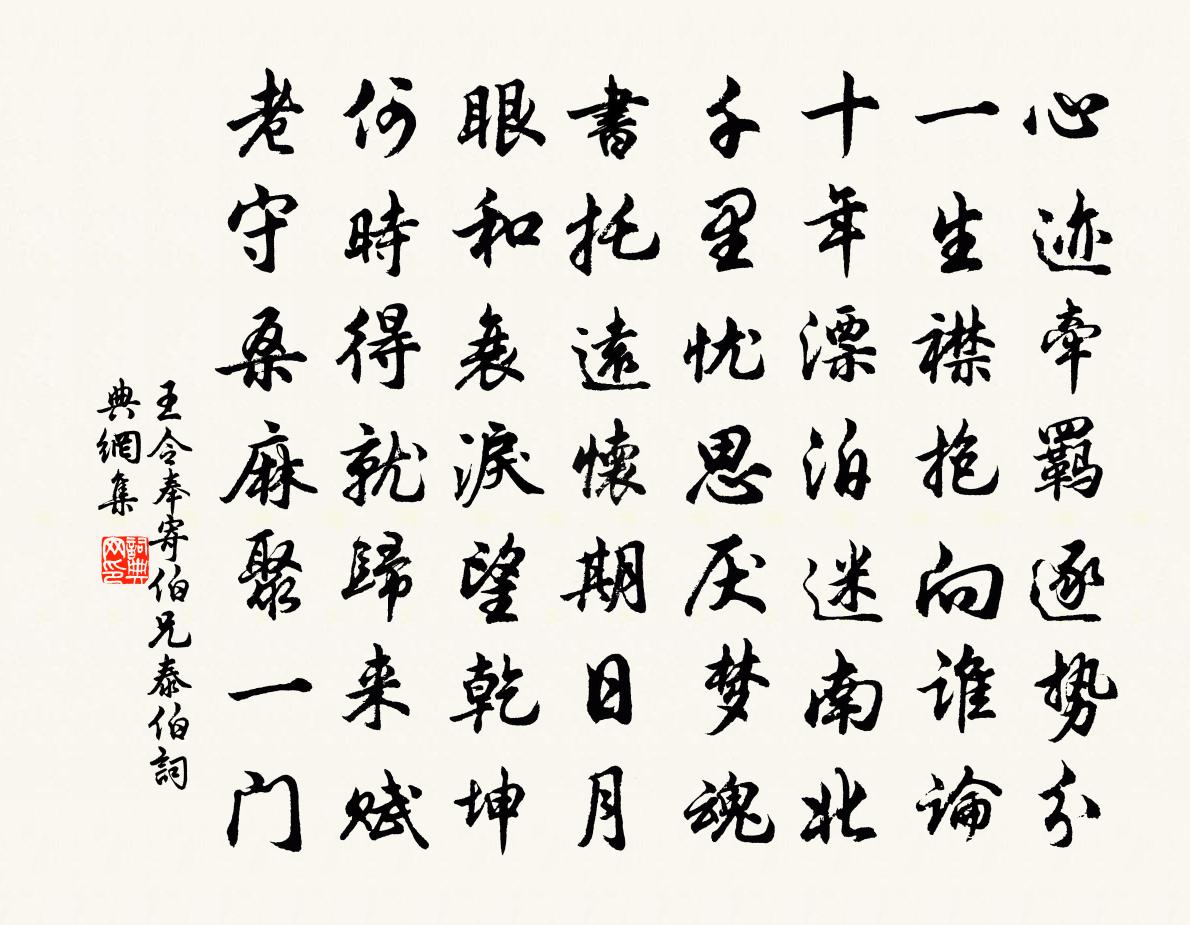 心迹牵羁逐势分
一生襟抱向谁论
十年漂泊迷南北
千里忧思厌梦魂
書托遠懷期日月
眼和衰淚望乾坤
何時得就歸来赋
老守桑麻聚一门
王令奉寄伯兄泰伯詞
典網集
詞典
网印